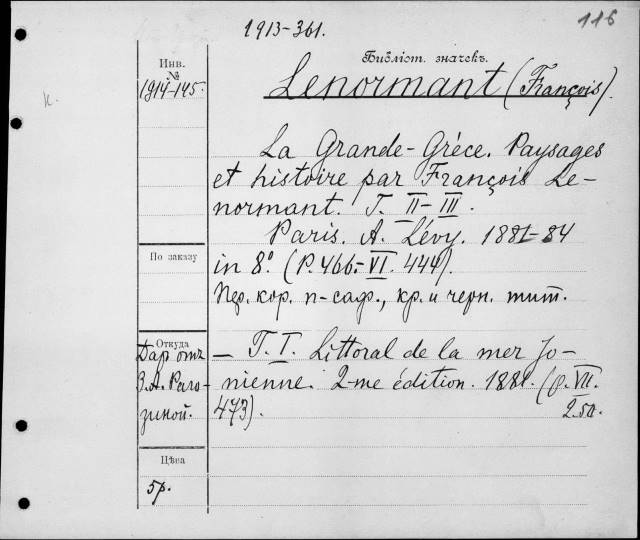 1913-361.
116
Библіот. значекъ.
Инв.
№
1914-145.
Lenormant (François).
к.
La Grande-Gréce. Paysages
et histoire par François Le-
normant. T. II-III.
Paris. A. Lévy. 1881-84
По заказу
in 8º. (P. 466.-VI. 444).
Пер. кор. п-саф., кр. и черн. тит.
Откуда
Дар отъ
З. А. Раго-
зиной.
— T. I. Littoral de la mer Jo-
nienne. 2-me édition. 1881. (p. VII.
473).
2 эп.
Цѣна
5р.